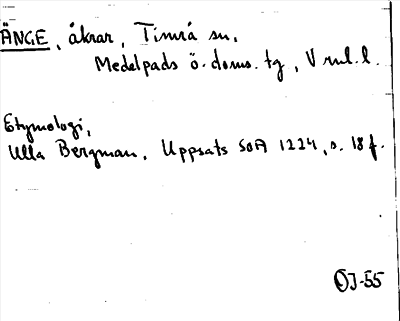 ÄNGE, åkrar, Timrå sn.
Medelpads ö. doms. tg, V nl. l.
Etymologi,
Ulla Bergman, Uppsats SOA 1224, s. 18 f.
ÖJ-55